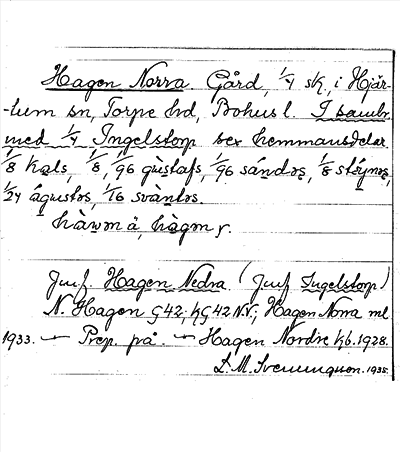 Hagen Norra. Gård, 1/4 sk., i Hjär-
-tum sn, Torpe hd, Bohus l. I sambr.
med 1/4 Ingelstorp sex hemmansdelar.
1/8 kals, 1/8, 1/96 gùstafs, 1/96 sándəs, 1/8
1/24 águstəs, 1/16 svàntəs.
hàgən r.
Jmf. Hagen Nedra (Jmf Ingelstorp)
N. Hagen G42; hG42 N.V.; Hagen Norra ml
1933. — Prep. på. — Hagen Nordre hb. 1928.
L. M. Svenungsson. 1935.